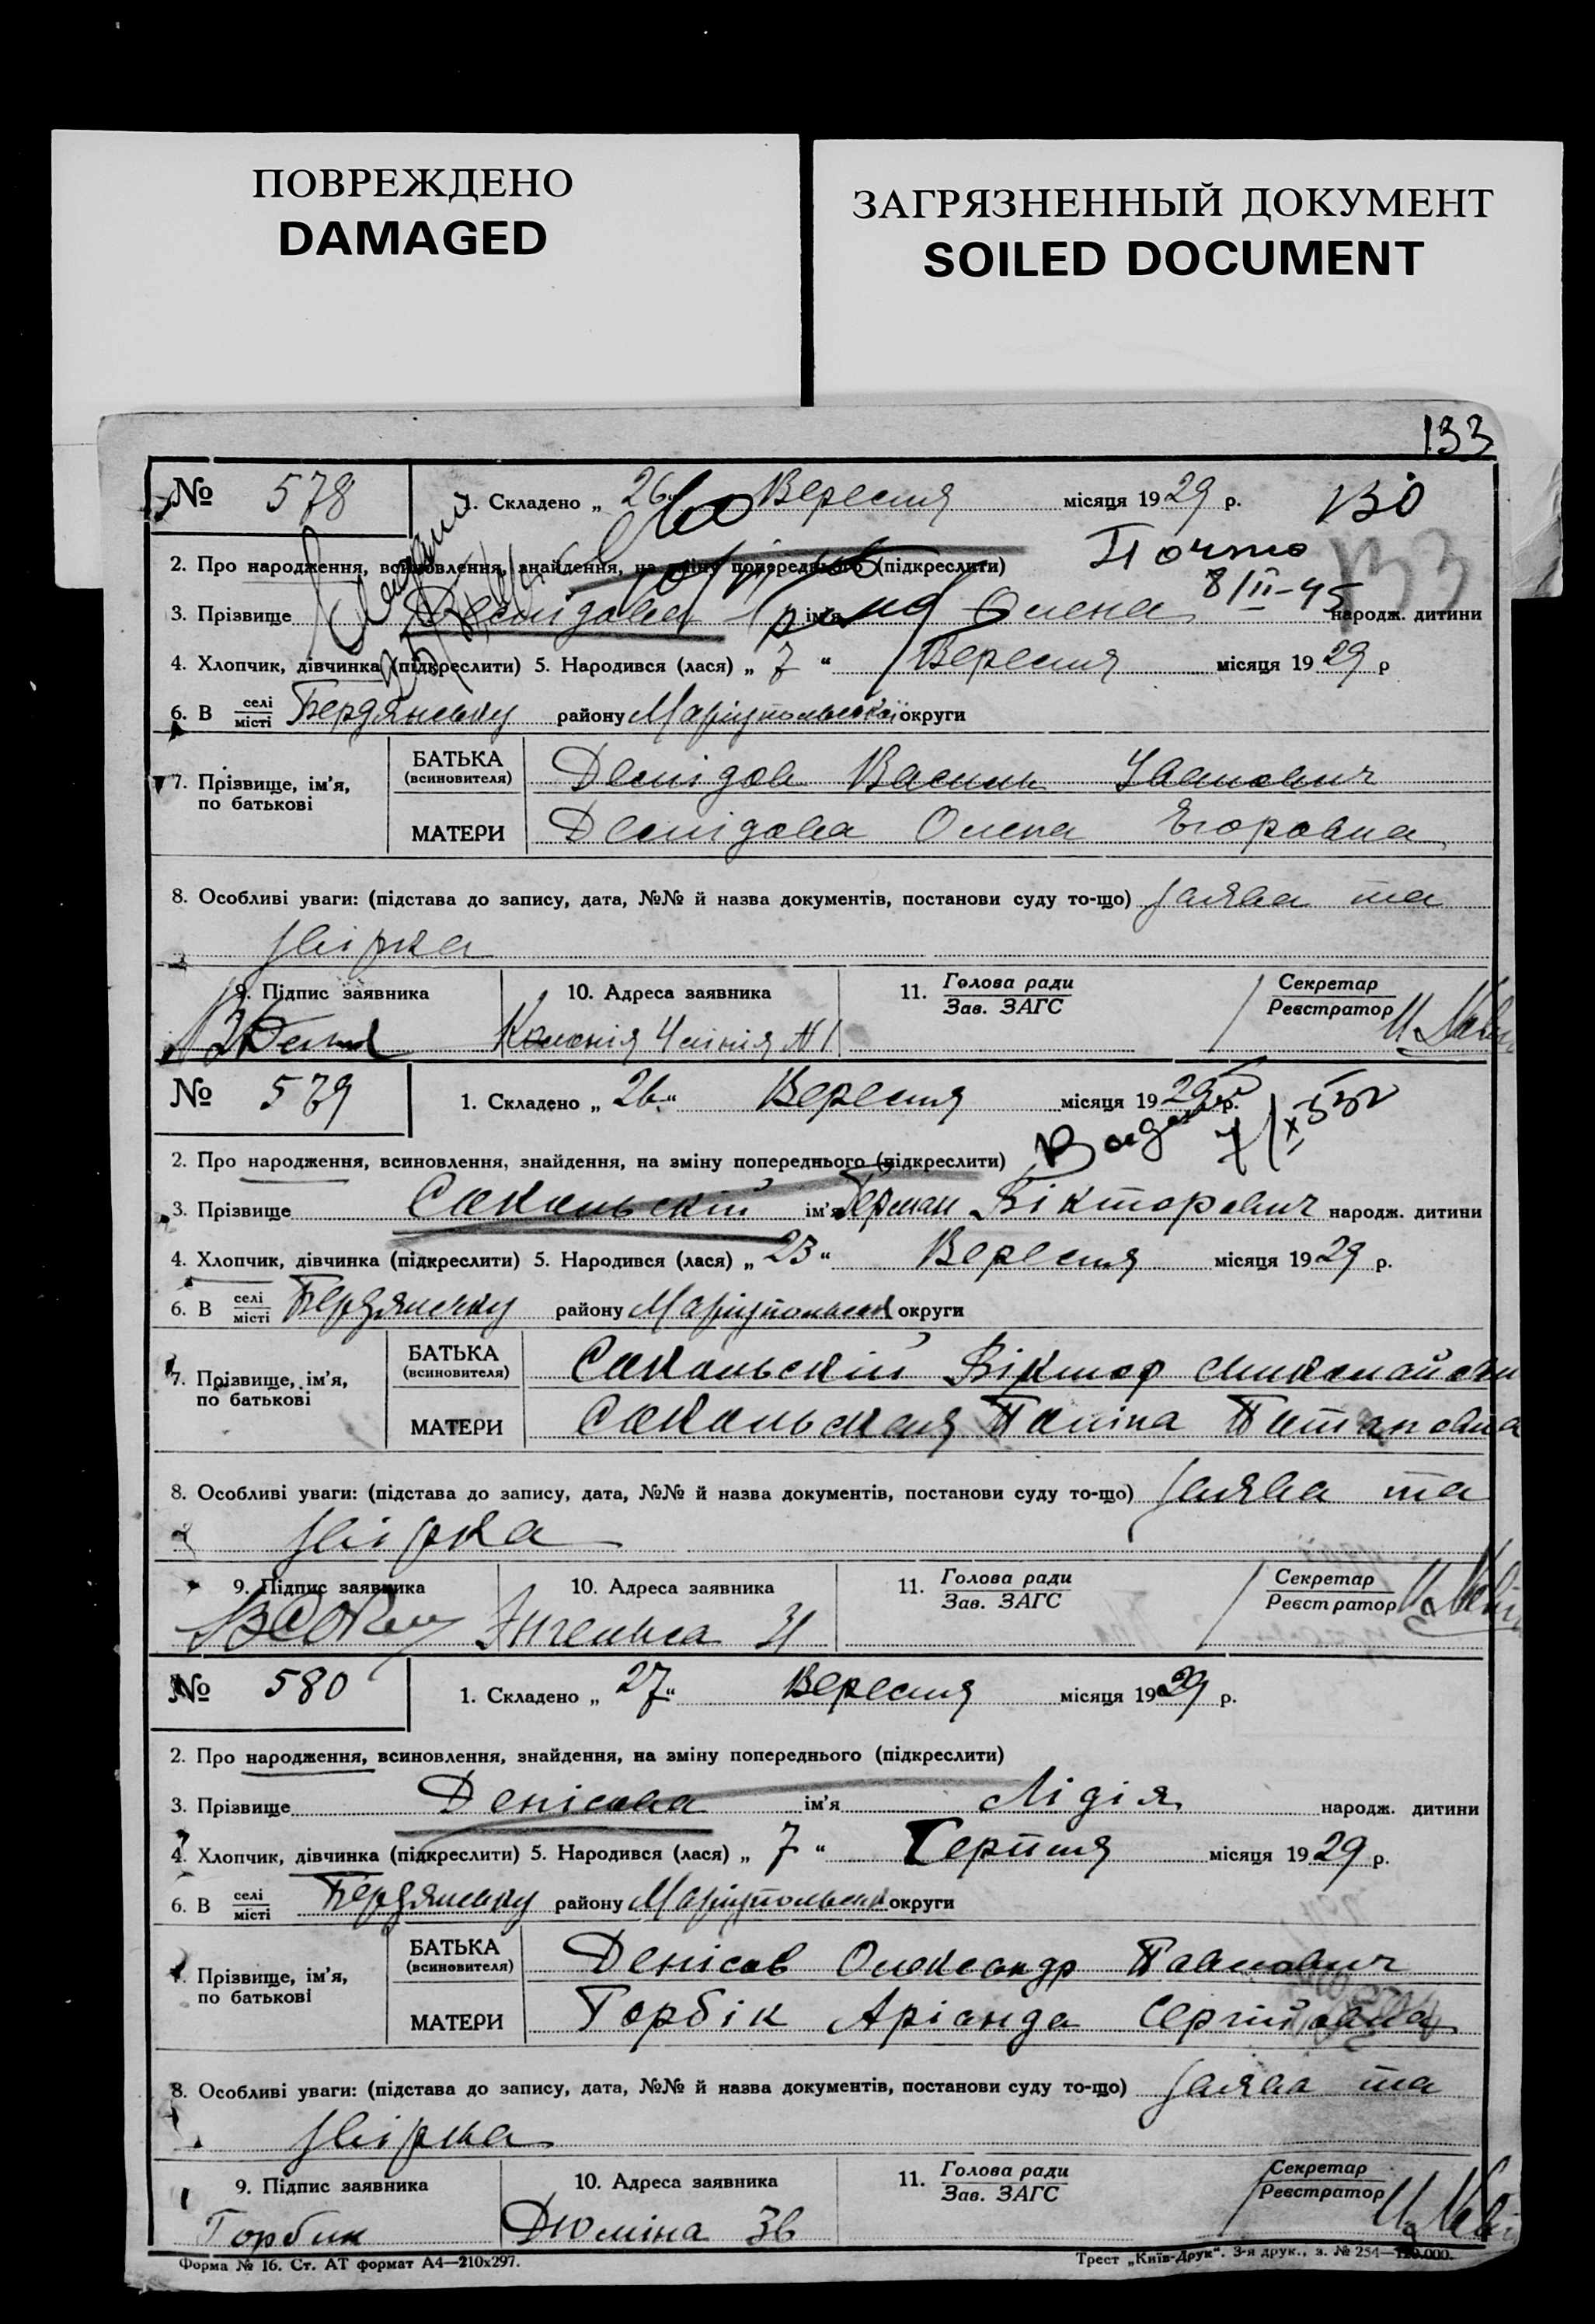 ПОВРЕЖДЕНО
DAMAGED
ЗАГРЯЗНЕННЫЙ ДОКУМЕНТ
SOILED DOCUMENT
133
№ 578 1. Складено „ 26 “ Вересня місяця 1929 р.
Почто
133
2. Про народження, всиновлення, знайдення, на зміну попереднього (підкреслити)
8/II-45
3. Прізвище Демідова ім'я Олена народж. дитини
4. Хлопчик, дівчинка (підкреслити) 5. Народився (лася) „ 7 “ Вересня місяця 1929 р
6. В селі місті Бердянську району Маріупольської округи
7. Прізвище, ім'я, по батькові
БАТЬКА (всиновителя) Демідов Василь Іванович
МАТЕРИ Демідова Олена Егоровна
8. Особливі уваги: (підстава до запису, дата, №№ й назва документів, постанови суду то-що) Заява та
звірка
9. Підпис заявника 10. Адреса заявника 11. Голова ради Зав. ЗАГС Секретар Реєстратор
Колонія 4 лінія № 1
№ 579 1. Складено „ 26 “ Вересня місяця 1929 р.
2. Про народження, всиновлення, знайдення, на зміну попереднього (підкреслити)
3. Прізвище Сокольскій ім'я Герман Вікторович народж. дитини
4. Хлопчик, дівчинка (підкреслити) 5. Народився (лася) „ 23 “ Вересня місяця 1929 р.
6. В селі місті Бердянську району Маріупольськ округи
7. Прізвище, ім'я, по батькові
БАТЬКА (всиновителя) Сокольскій Віктор Миколайови
МАТЕРИ Сокольская Поліна
8. Особливі уваги: (підстава до запису, дата, №№ й назва документів, постанови суду то-що) Заява та
звірка
9. Підпис заявника 10. Адреса заявника 11. Голова ради Зав. ЗАГС Секретар Реєстратор
Энгельса 31
№ 580 1. Складено „ 27 “ Вересня місяця 1929 р.
2. Про народження, всиновлення, знайдення, на зміну попереднього (підкреслити)
3. Прізвище Денісова ім'я Лідія народж. дитини
4. Хлопчик, дівчинка (підкреслити) 5. Народився (лася) „ 7 “ Серпня місяця 1929 р.
6. В селі місті Бердянську району Маріупольськ округи
7. Прізвище, ім'я, по батькові
БАТЬКА (всиновителя) Денісов Олександр Павлович
МАТЕРИ Горбік Аріанда Сергійовна
8. Особливі уваги: (підстава до запису, дата, №№ й назва документів, постанови суду то-що) Заява та
звірка
9. Підпис заявника 10. Адреса заявника 11. Голова ради Зав. ЗАГС Секретар Реєстратор
Горбик Дюміна 36
Форма № 16. Ст. АТ формат А4—210х297.
Трест „Київ-Друк“. 3-я друк., з. № 254—120.000.